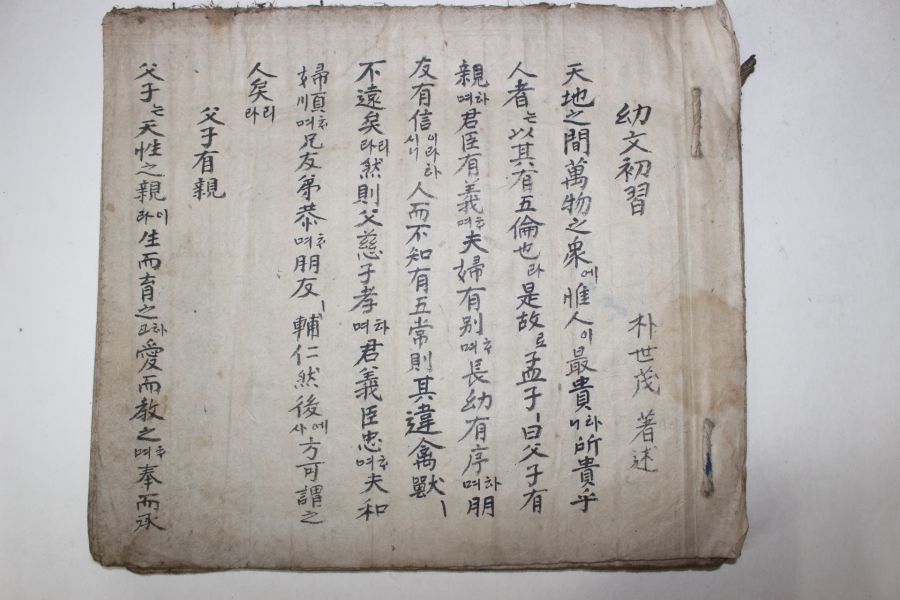 幼文初習
朴世茂 著述
天地之間萬物之衆에惟人이最貴하니라所貴乎
人者는以其有五倫也라是故로孟子ㅣ曰父子有
親하며君臣有義하며夫婦有別하며長幼有序하며朋
友有信이라하시니人而不知有五常則其違禽獸ㅣ
不遠矣리라然則父慈子孝하며君義臣忠하며夫和
婦順하며兄友弟恭하며朋友ㅣ輔仁然後에사方可謂之
人矣리라
父子有親
父子는天性之親이라生而育之하고愛而教之하며奉而承